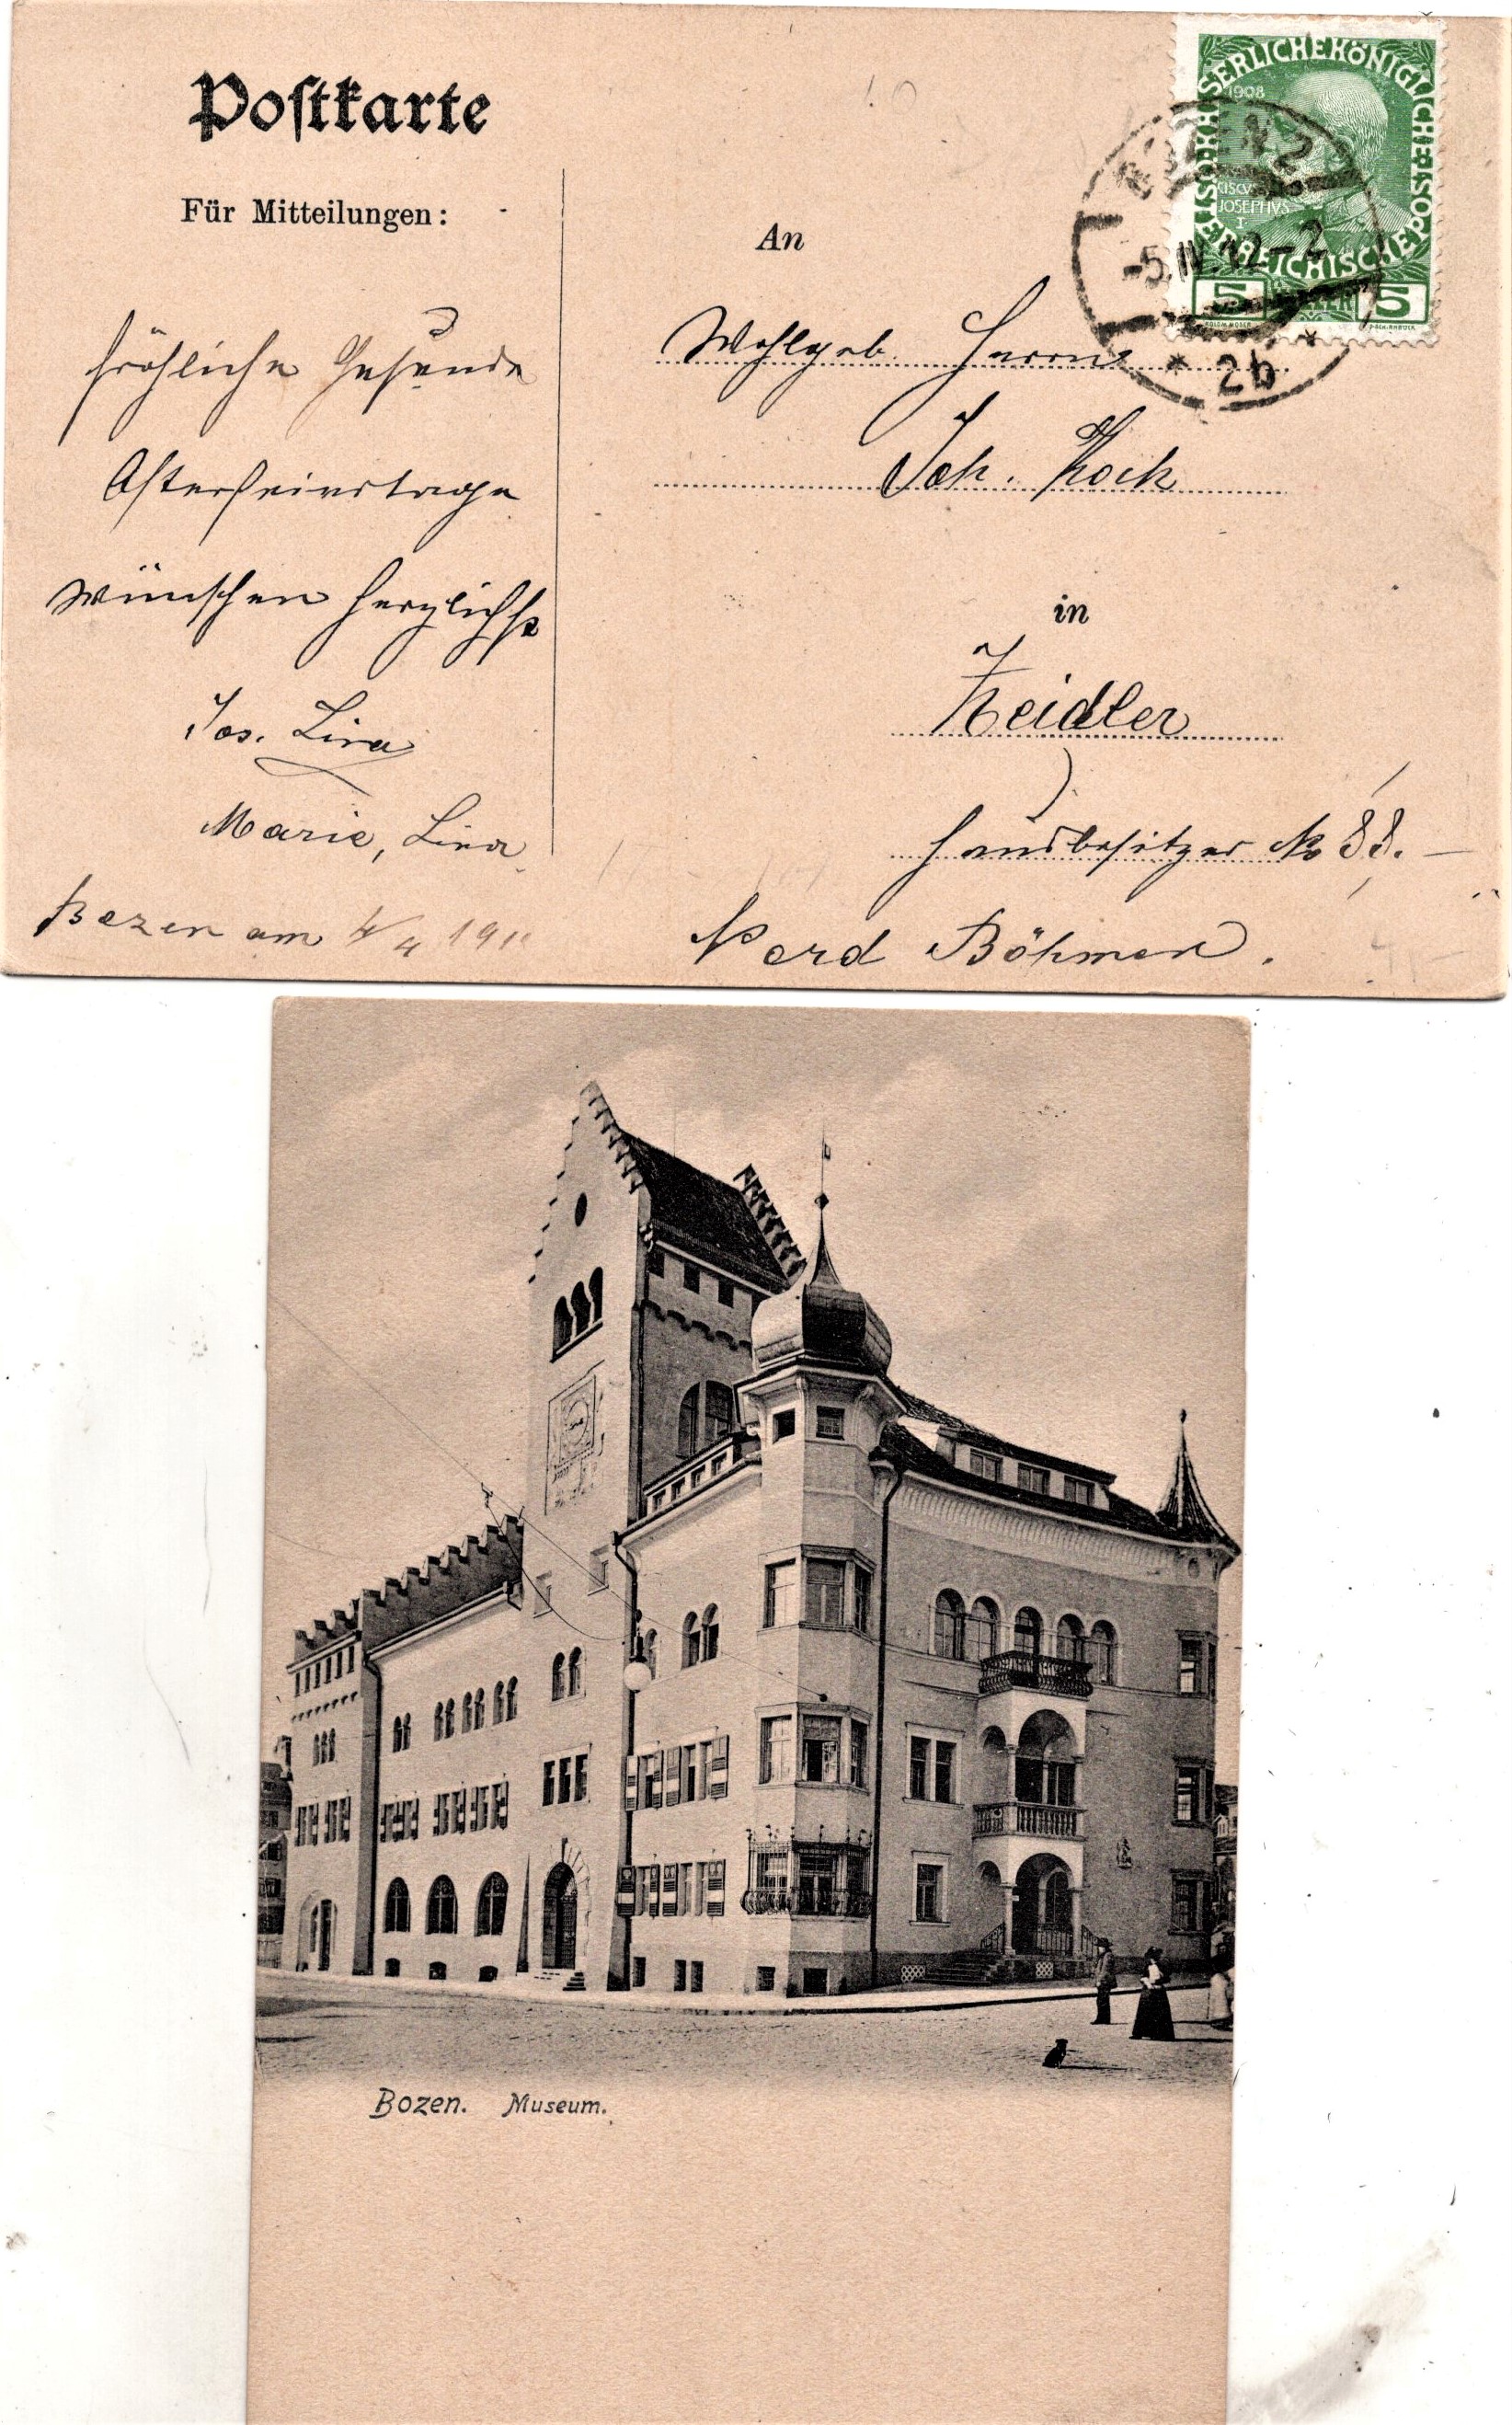 Postkarte
Für Mitteilungen:
fröhliche Gesunde
Osterfeiertage
wünschen herzlichst
Jos. Lina
Marie, Lina
Bozen am 4/4 191
KAISERLICHE KÖNIGLICHE ÖSTERREICHISCHE POST
1908
JOSEPHVS
I
5 HELLER 5
BOZEN 2
-5.IV.12-2
* 2b *
An
Wohlgeb. Herrn
Joh. Koch
in
Zeidler
Hausbesitzer No 88.
Nord Böhmen.
Bozen. Museum.